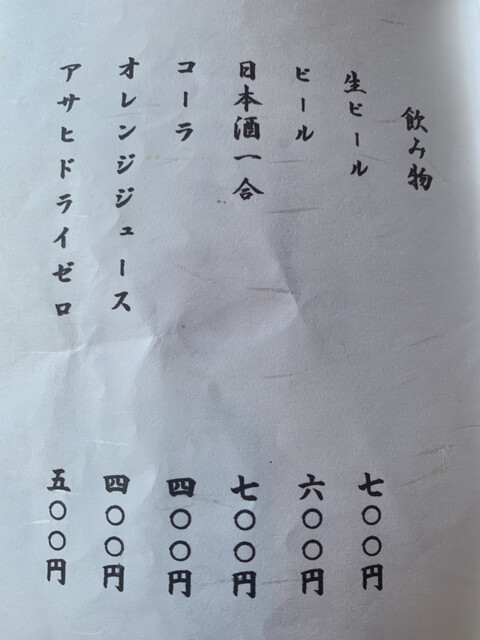 飲み物
生ビール 七〇〇円
ビール 六〇〇円
日本酒一合 七〇〇円
コーラ 四〇〇円
オレンジジュース 四〇〇円
アサヒドライゼロ 五〇〇円